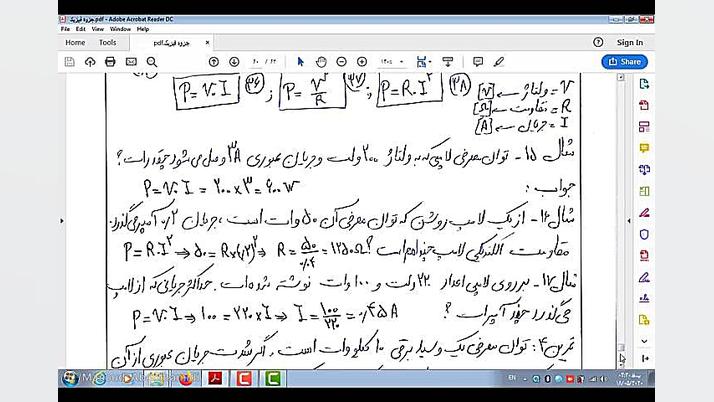 جزوه فیزیک.pdf - Adobe Acrobat Reader DC
File Edit View Window Help
Home Tools جزوه فیزیک.pdf × Sign In
۲۰ / ۶۳ ۱۲۰% Share
P=V.I (۳۶) ; P=V²/R (۳۷) ; P=R.I² (۳۸)
V = ولتاژ ← [V]
R = مقاومت ← [Ω]
I = جریان ← [A]
مثال ۱۵- توان مصرفی لامپی که به ولتاژ ۲۰۰ ولت و جریان عبوری ۳A وصل می شود چقدر است؟
جواب :
P=V.I = ۲۰۰ × ۳ = ۶۰۰ W
مثال ۱۶- از یک لامپ روشن که توان مصرفی آن ۵۰ وات است، جریان ۰/۲ آمپر می گذرد.
مقاومت الکتریکی لامپ چند اهم است؟ P=R.I² ⇒ ۵۰ = R×(۰/۲)² ⇒ R = ۵۰/۰/۰۴ = ۱۲۵۰ Ω
مثال ۱۷- بر روی لامپی اعداد ۲۲۰ ولت و ۱۰۰ وات نوشته شده است. حداکثر جریانی که از لامپ
می گذرد چند آمپر است ؟ P=V.I ⇒ ۱۰۰ = ۲۲۰×I ⇒ I = ۱۰۰/۲۲۰ = ۰/۴۵ A
تمرین ۴: توان مصرفی یک وسیله برقی ۱۰ کیلو وات است، اگر شدت جریان عبوری از آن
EN